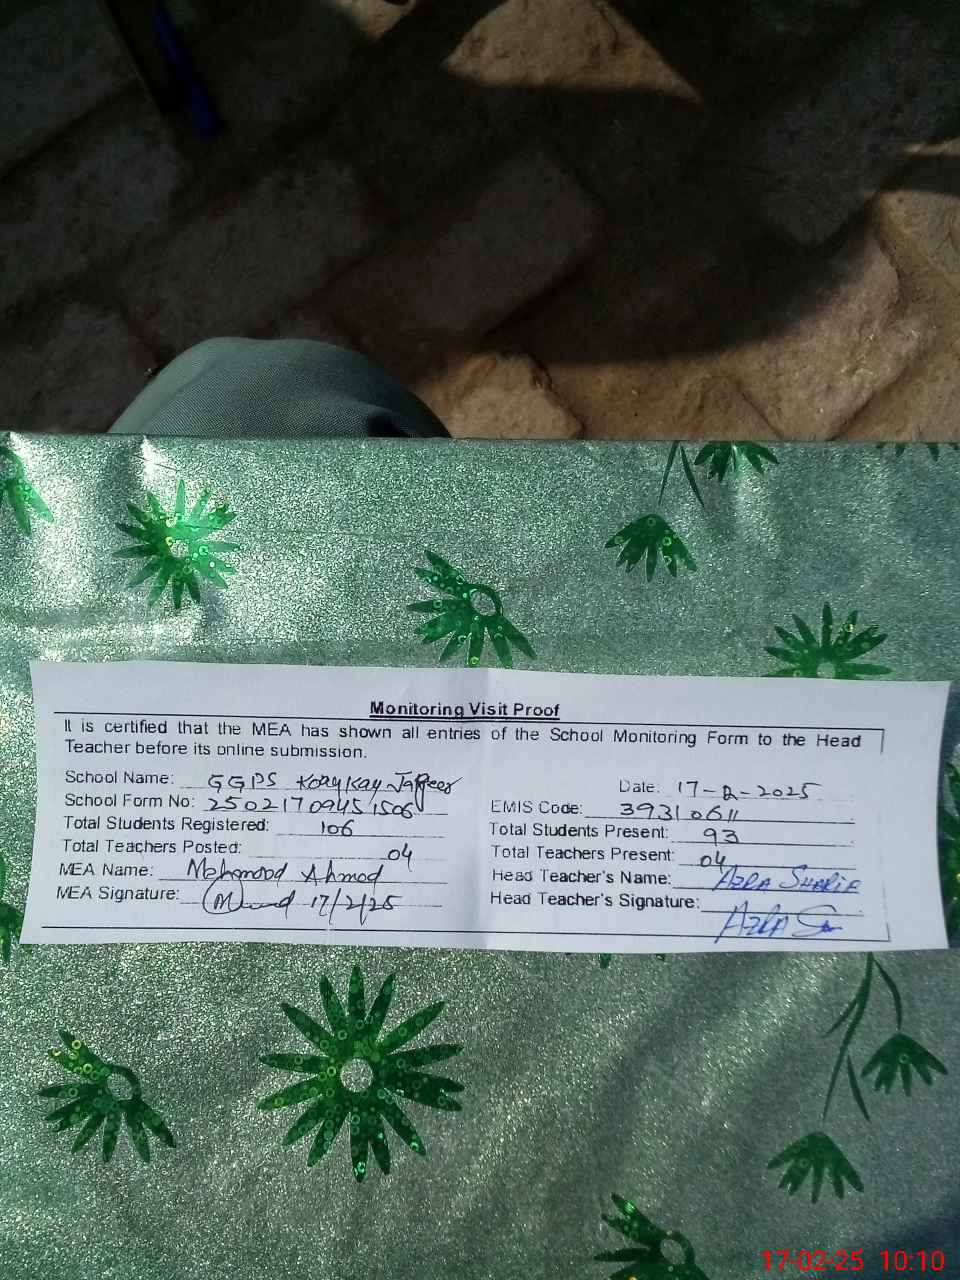 Monitoring Visit Proof
It is certified that the MEA has shown all entries of the School Monitoring Form to the Head
Teacher before its online submission.
School Name: GGPS
Date: 17-2-2025
School Form No: 25021709451506
EMIS Code: 39310611
Total Students Registered: 106
Total Students Present: 93
Total Teachers Posted: 04
Total Teachers Present: 04
MEA Name: Mehmood Ahmad
Head Teacher's Name: AZRA SHARIF
MEA Signature: 17/2/25
Head Teacher's Signature: AZRA
17-02-25 10:10